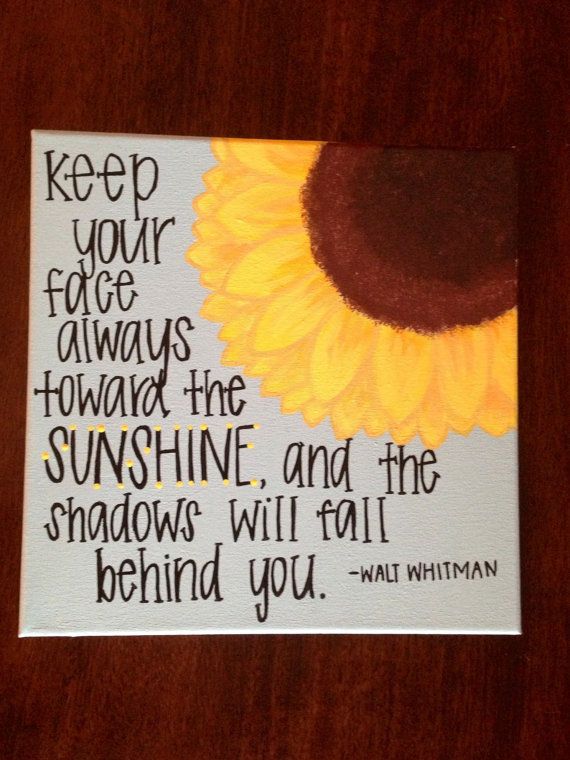 keep
your
face
always
toward the
SUNSHINE, and the
shadows will fall
behind you. -WALT WHITMAN